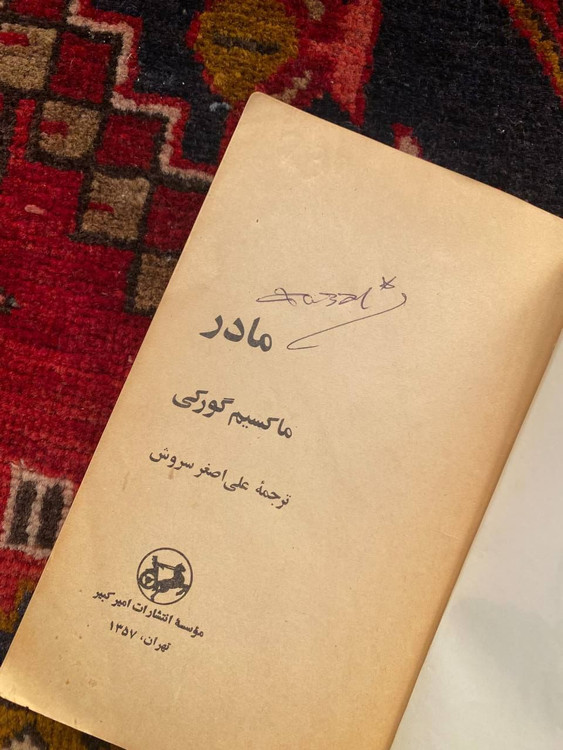 مادر
ماکسیم گورکی
ترجمهٔ علی‌اصغر سروش
مؤسسهٔ انتشارات امیرکبیر
تهران، ۱۳۵۷